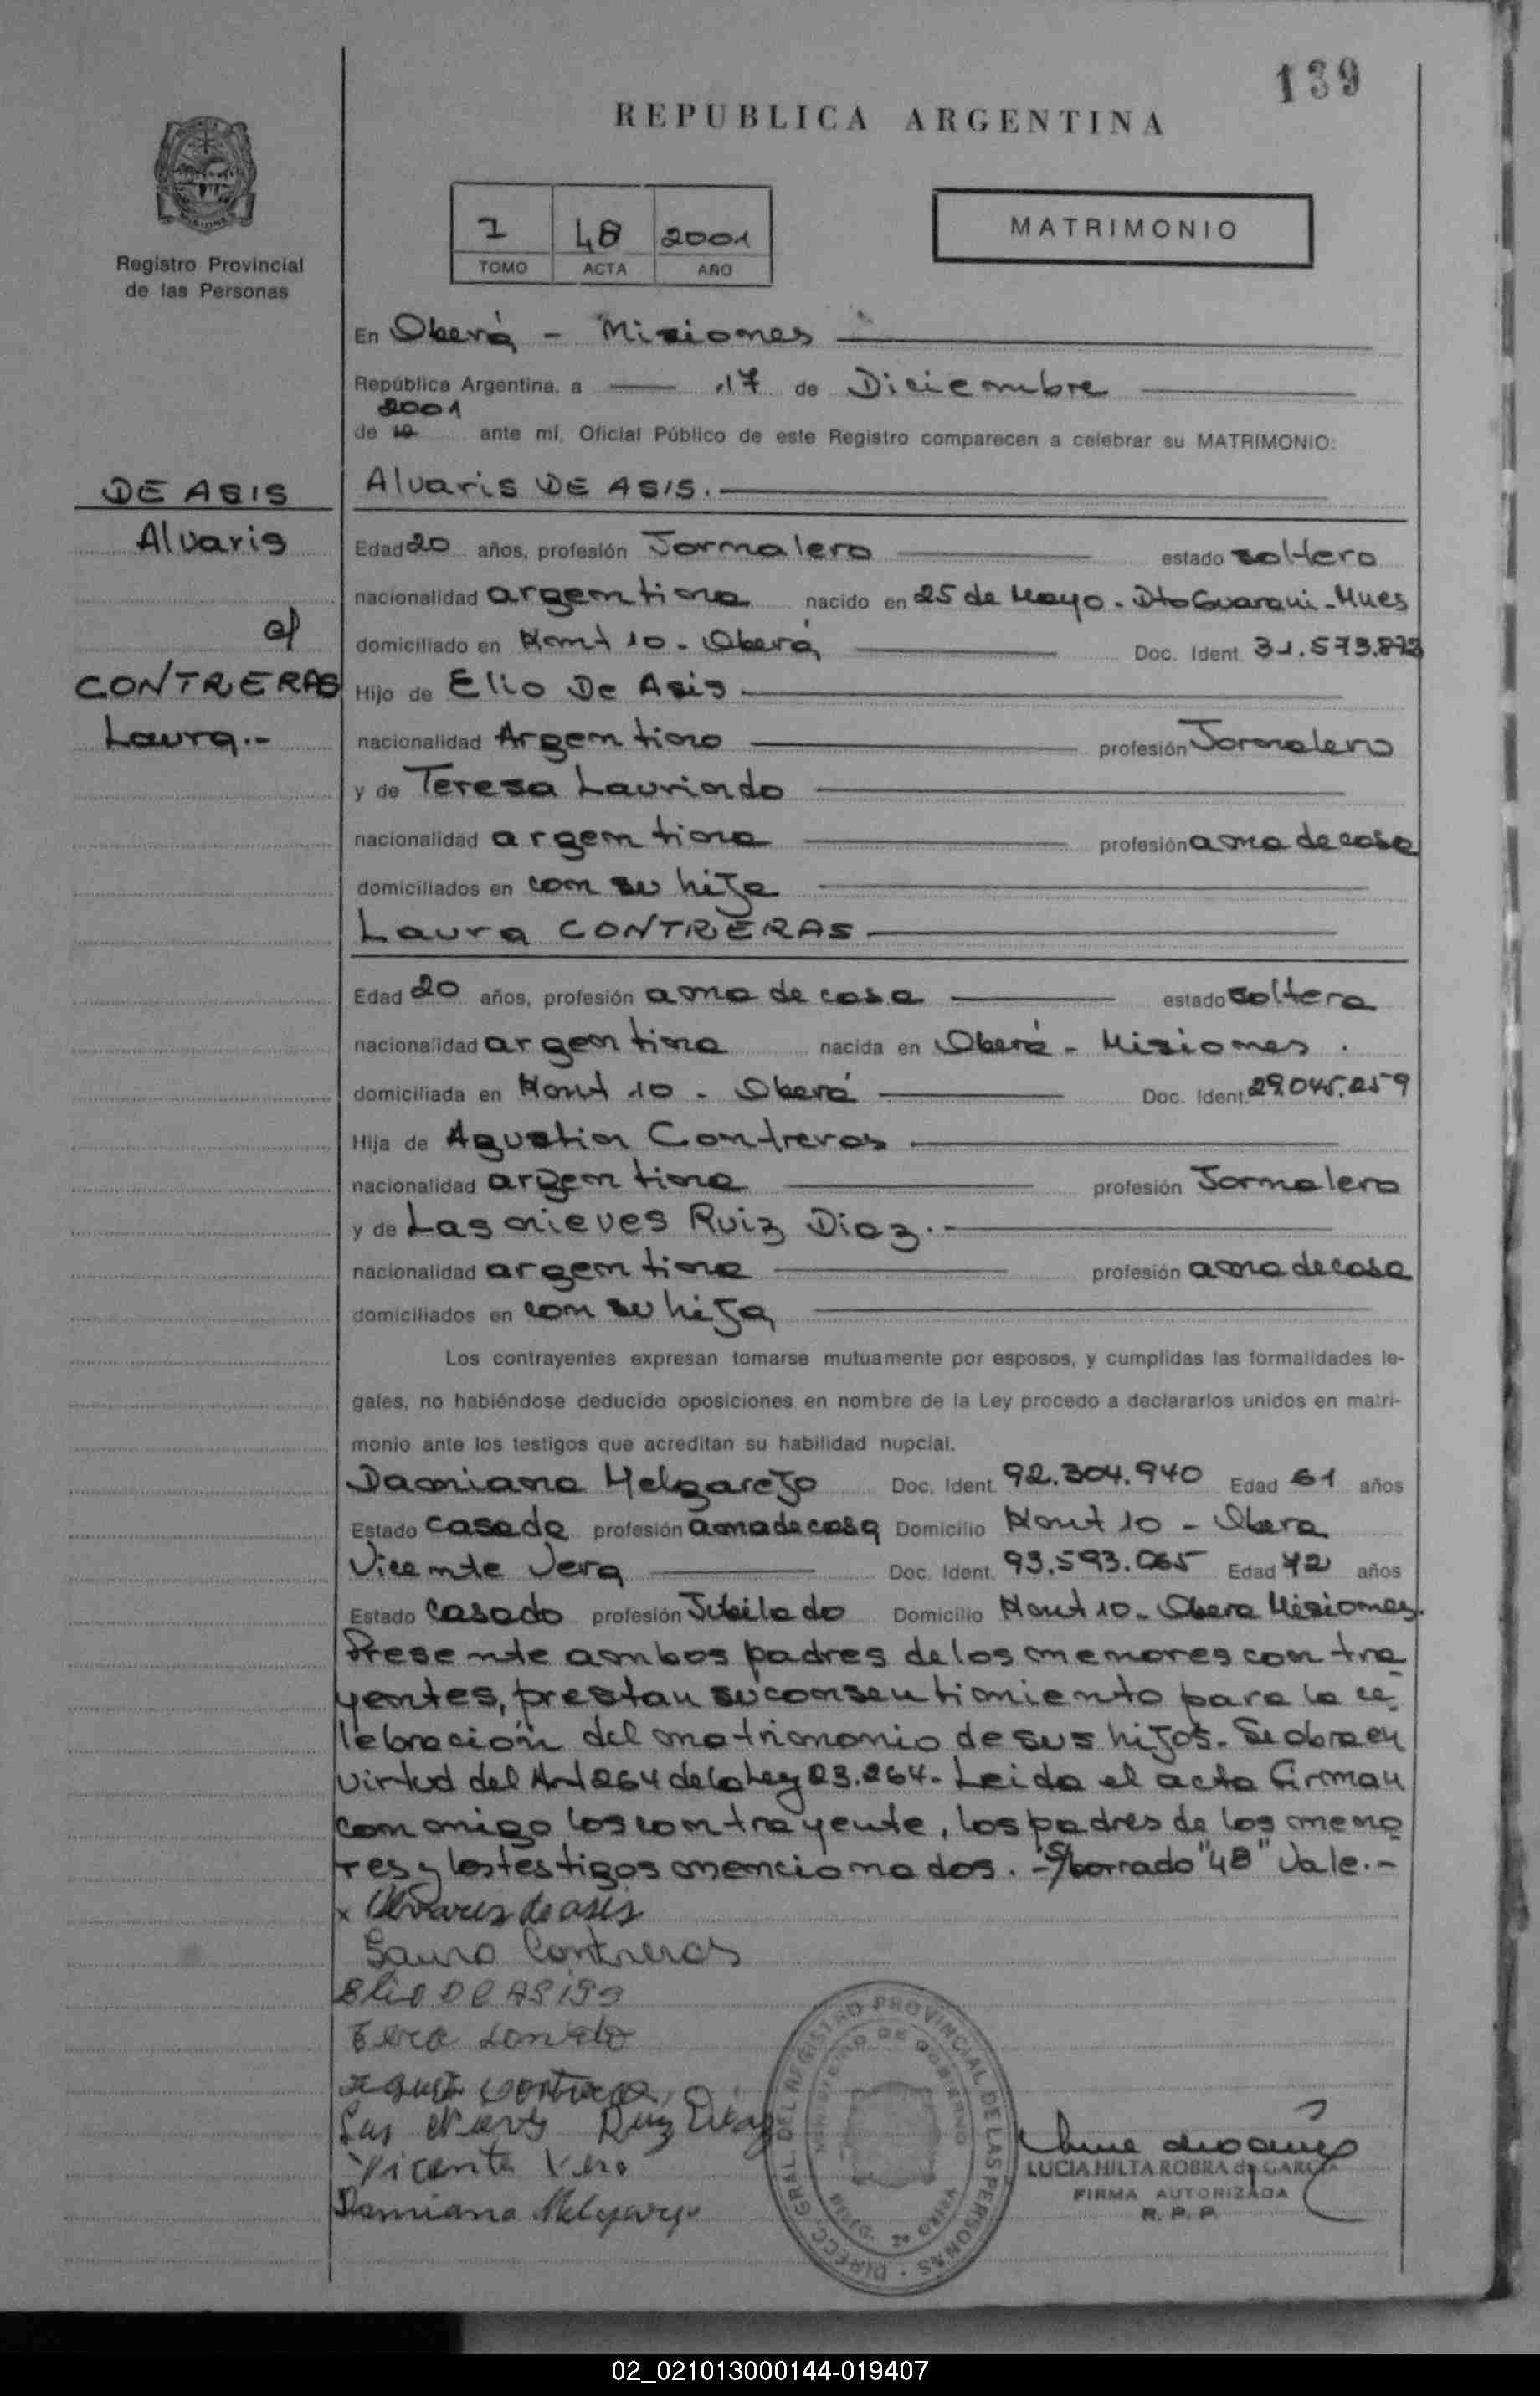 139
REPUBLICA ARGENTINA
MISIONES
Registro Provincial
de las Personas
1 48 2001
TOMO ACTA AÑO
MATRIMONIO
En Oberá - Misiones
República Argentina, a 17 de Diciembre
2001
de 19 ante mí, Oficial Público de este Registro comparecen a celebrar su MATRIMONIO:
DE ASIS
Alvaris
c/
CONTRERAS
Laura.-
Alvaris DE ASIS.
Edad 20 años, profesión Jornalero estado soltero
nacionalidad argentina nacido en 25 de Mayo. Dto Guarani - Mnes
domiciliado en Km̃t 10 - Oberá Doc. Ident. 31.573.873
Hijo de Elio De Asis
nacionalidad Argentino profesión Jornalero
y de Teresa Laurindo
nacionalidad argentina profesión ama de casa
domiciliados en con su hija
Laura CONTRERAS
Edad 20 años, profesión ama de casa estado soltera
nacionalidad argentina nacida en Oberá - Misiones .
domiciliada en 10 - Oberá Doc. Ident. 29.045.259
Hija de Agustin Contreras
nacionalidad argentina profesión Jornalero
y de Las nieves Ruiz Diaz.-
nacionalidad argentina profesión ama de casa
domiciliados en con su hija
Los contrayentes expresan tomarse mutuamente por esposos, y cumplidas las formalidades le-
gales, no habiéndose deducido oposiciones en nombre de la Ley procedo a declararlos unidos en matri-
monio ante los testigos que acreditan su habilidad nupcial.
Damiana Melgarejo Doc. Ident. 92.304.940 Edad 61 años
Estado casada profesión ama de casa Domicilio 10 - Obera
Vicente Vera Doc. Ident. 93.593.065 Edad 72 años
Estado casado profesión Jubilado Domicilio 10 - Obera Misiones.
Presente ambos padres de los menores contra
yentes, prestan su consentimiento para la ce
lebración del matrimonio de sus hijos. Se obra en
virtud del Art 264 de la Ley 23.264 - Leida el acta firman
conmigo los contrayente, los padres de los meno
res y los testigos mencionados. - S/borrado "48" Vale.-
x Alvares de asis
Laura Contreras
Elio De ASiss
Las Nieves Ruiz Diaz
Vicente Vera
Damiana Melgarejo
DIRECC. GRAL. DEL REGISTRO PROVINCIAL DE LAS PERSONAS
MINISTERIO DE GOBIERNO
LUCIA HILTA ROBRA de GARCIA
FIRMA AUTORIZADA
R. P. P.
02_021013000144-019407